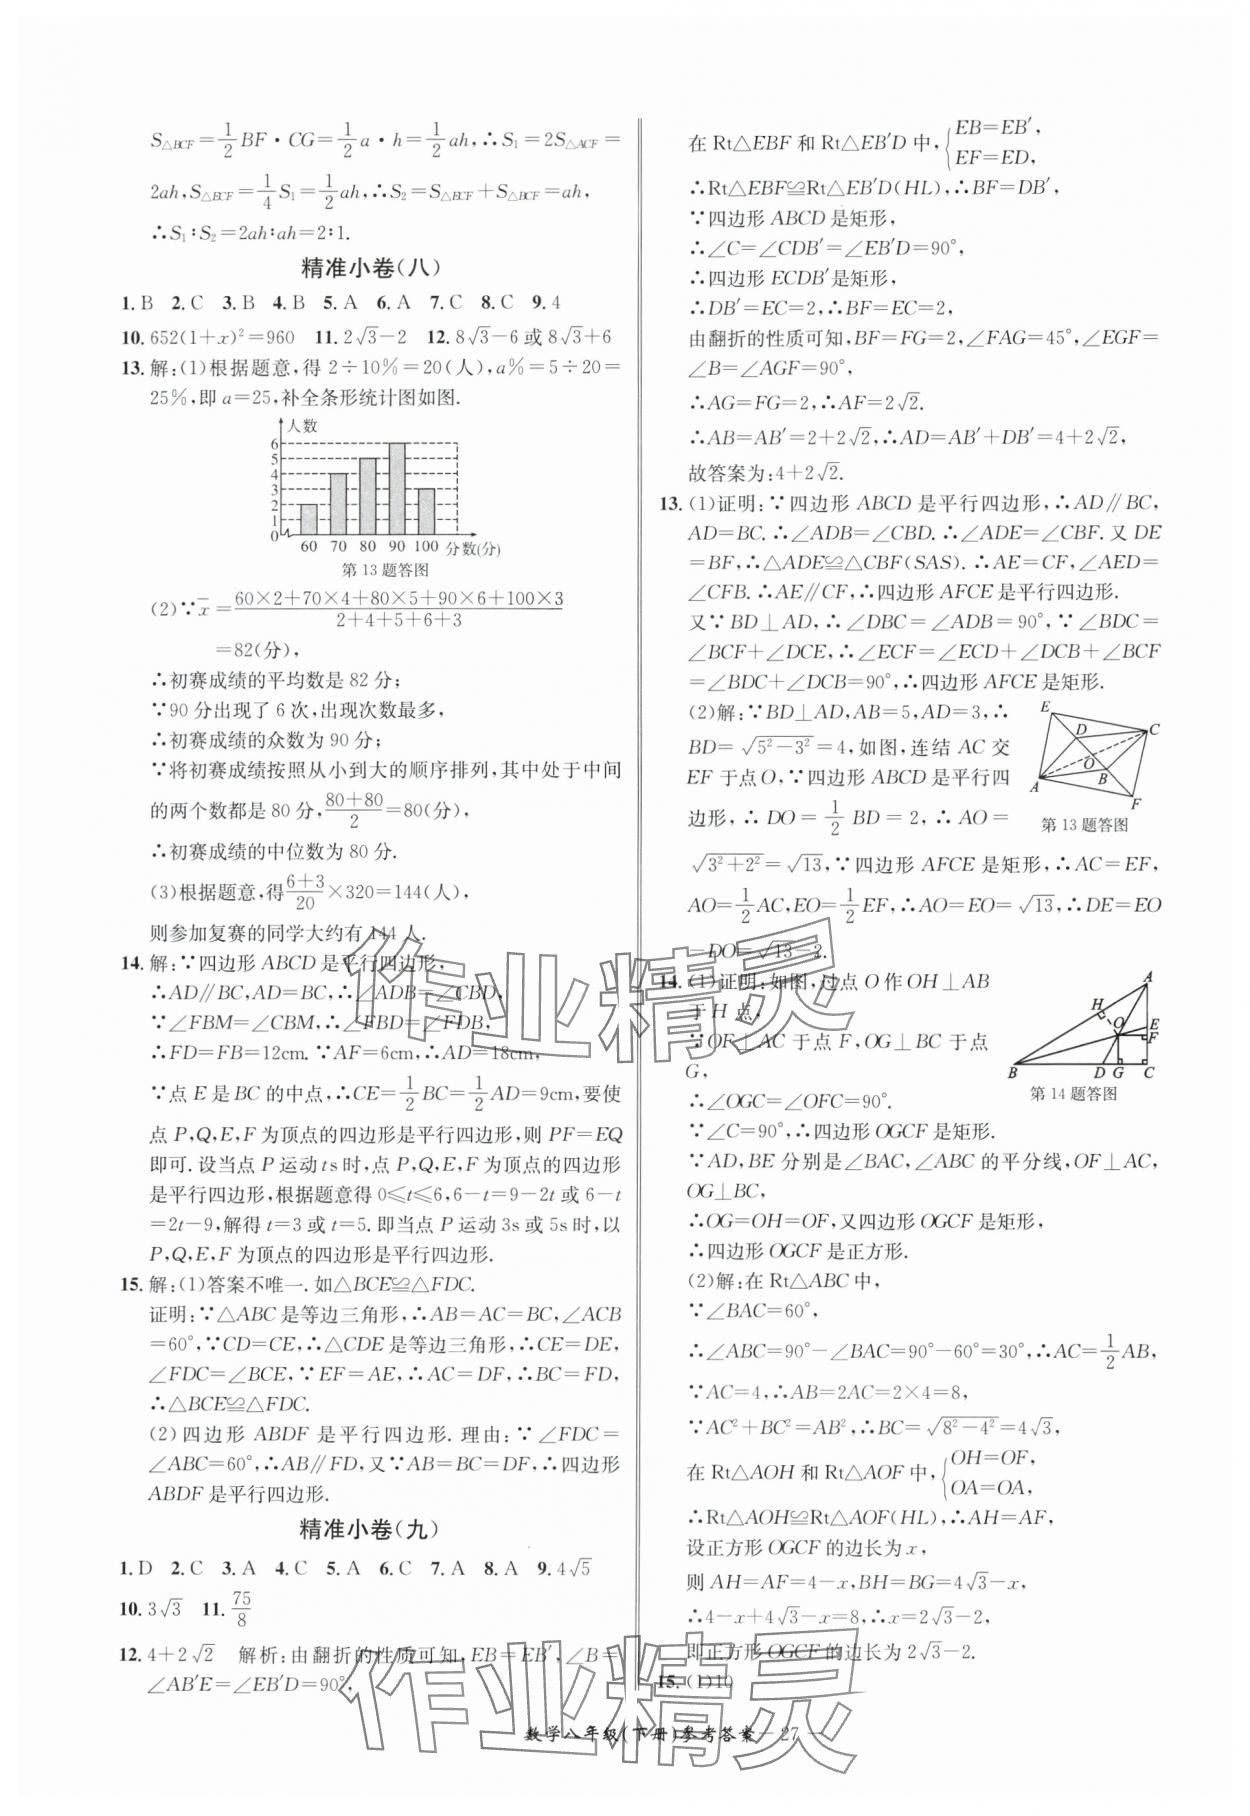 S△BCF=1/2BF·CG=1/2a·h=1/2ah,∴S₁=2S△ACF=
2ah,S△BCF=1/4S₁=1/2ah,∴S₂=S△BCF+S△BCF=ah,
∴S₁∶S₂=2ah∶ah=2∶1.
精准小卷(八)
1.B 2.C 3.B 4.B 5.A 6.A 7.C 8.C 9.4
10.652(1+x)²=960 11.2√3-2 12.8√3-6或8√3+6
13.解:(1)根据题意,得2÷10%=20(人),a%=5÷20=
25%,即a=25,补全条形统计图如图.
人数
6
5
4
3
2
1
0
60 70 80 90 100 分数(分)
第13题答图
(2)∵x̄=(60×2+70×4+80×5+90×6+100×3)/(2+4+5+6+3)
=82(分),
∴初赛成绩的平均数是82分;
∵90分出现了6次,出现次数最多,
∴初赛成绩的众数为90分;
∵将初赛成绩按照从小到大的顺序排列,其中处于中间
的两个数都是80分,(80+80)/2=80(分),
∴初赛成绩的中位数为80分.
(3)根据题意,得(6+3)/20×320=144(人),
则参加复赛的同学大约有144人.
14.解:∵四边形ABCD是平行四边形,
∴AD∥BC,AD=BC,∴∠ADB=∠CBD,
∵∠FBM=∠CBM,∴∠FBD=∠FDB,
∴FD=FB=12cm.∵AF=6cm,∴AD=18cm,
∵点E是BC的中点,∴CE=1/2BC=1/2AD=9cm,要使
点P,Q,E,F为顶点的四边形是平行四边形,则PF=EQ
即可.设当点P运动ts时,点P,Q,E,F为顶点的四边形
是平行四边形,根据题意得0≤t≤6,6-t=9-2t或6-t
=2t-9,解得t=3或t=5.即当点P运动3s或5s时,以
P,Q,E,F为顶点的四边形是平行四边形.
15.解:(1)答案不唯一.如△BCE≌△FDC.
证明:∵△ABC是等边三角形,∴AB=AC=BC,∠ACB
=60°,∵CD=CE,∴△CDE是等边三角形,∴CE=DE,
∠FDC=∠BCE,∵EF=AE,∴AC=DF,∴BC=FD,
∴△BCE≌△FDC.
(2)四边形ABDF是平行四边形.理由:∵∠FDC=
∠ABC=60°,∴AB∥FD,又∵AB=BC=DF,∴四边形
ABDF是平行四边形.
精准小卷(九)
1.D 2.C 3.A 4.C 5.A 6.C 7.A 8.A 9.4√5
10.3√3 11.75/8
12.4+2√2 解析:由翻折的性质可知,EB=EB′,∠B=
∠AB′E=∠EB′D=90°.
在Rt△EBF和Rt△EB′D中,{EB=EB′,
EF=ED,
∴Rt△EBF≌Rt△EB′D(HL),∴BF=DB′,
∵四边形ABCD是矩形,
∴∠C=∠CDB′=∠EB′D=90°,
∴四边形ECDB′是矩形,
∴DB′=EC=2,∴BF=EC=2,
由翻折的性质可知,BF=FG=2,∠FAG=45°,∠EGF=
∠B=∠AGF=90°,
∴AG=FG=2,∴AF=2√2.
∴AB=AB′=2+2√2,∴AD=AB′+DB′=4+2√2,
故答案为:4+2√2.
13.(1)证明:∵四边形ABCD是平行四边形,∴AD∥BC,
AD=BC.∴∠ADB=∠CBD.∴∠ADE=∠CBF.又DE
=BF,∴△ADE≌△CBF(SAS).∴AE=CF,∠AED=
∠CFB.∴AE∥CF,∴四边形AFCE是平行四边形.
又∵BD⊥AD,∴∠DBC=∠ADB=90°,∵∠BDC=
∠BCF+∠DCE,∴∠ECF=∠ECD+∠DCB+∠BCF
=∠BDC+∠DCB=90°,∴四边形AFCE是矩形.
(2)解:∵BD⊥AD,AB=5,AD=3,∴
BD=√(5²-3²)=4,如图,连结AC交
EF于点O,∵四边形ABCD是平行四
边形,∴DO=1/2BD=2,∴AO=
E
D
C
O
A
B
F
第13题答图
√(3²+2²)=√13,∵四边形AFCE是矩形,∴AC=EF,
AO=1/2AC,EO=1/2EF,∴AO=EO=√13,∴DE=EO
=DO=√13-2.
14.(1)证明:如图,过点O作OH⊥AB
于H点,
∵OF⊥AC于点F,OG⊥BC于点
G,
A
H
O
E
F
B D G C
第14题答图
∴∠OGC=∠OFC=90°.
∵∠C=90°,∴四边形OGCF是矩形.
∵AD,BE分别是∠BAC,∠ABC的平分线,OF⊥AC,
OG⊥BC,
∴OG=OH=OF,又四边形OGCF是矩形,
∴四边形OGCF是正方形.
(2)解:在Rt△ABC中,
∵∠BAC=60°,
∴∠ABC=90°-∠BAC=90°-60°=30°,∴AC=1/2AB,
∵AC=4,∴AB=2AC=2×4=8,
∵AC²+BC²=AB²,∴BC=√(8²-4²)=4√3,
在Rt△AOH和Rt△AOF中,{OH=OF,
OA=OA,
∴Rt△AOH≌Rt△AOF(HL),∴AH=AF,
设正方形OGCF的边长为x,
则AH=AF=4-x,BH=BG=4√3-x,
∴4-x+4√3-x=8,∴x=2√3-2,
即正方形OGCF的边长为2√3-2.
15.(1)10
数学八年级(下册)参考答案—27—
作业精灵
作业精灵